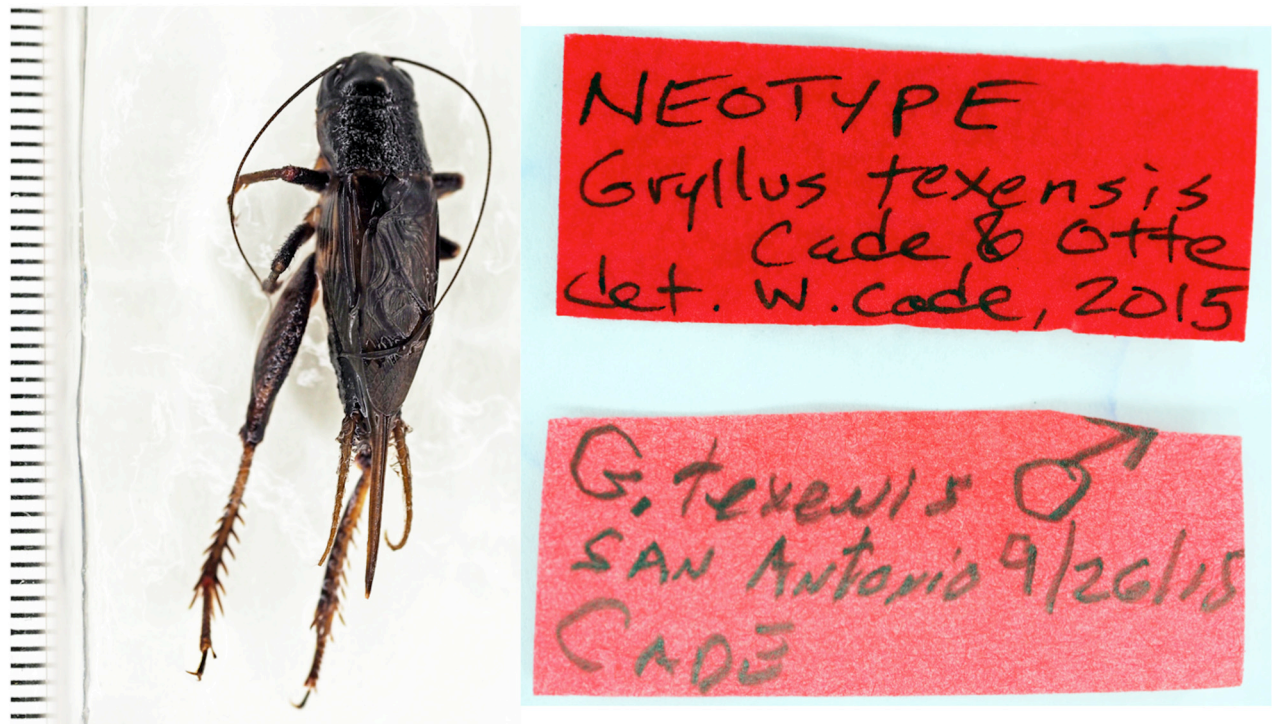 NEOTYPE
Gryllus texensis
Cade & Otte
det. W. Cade, 2015
G. texenis ♂
SAN Antonio 9/26/15
CADE